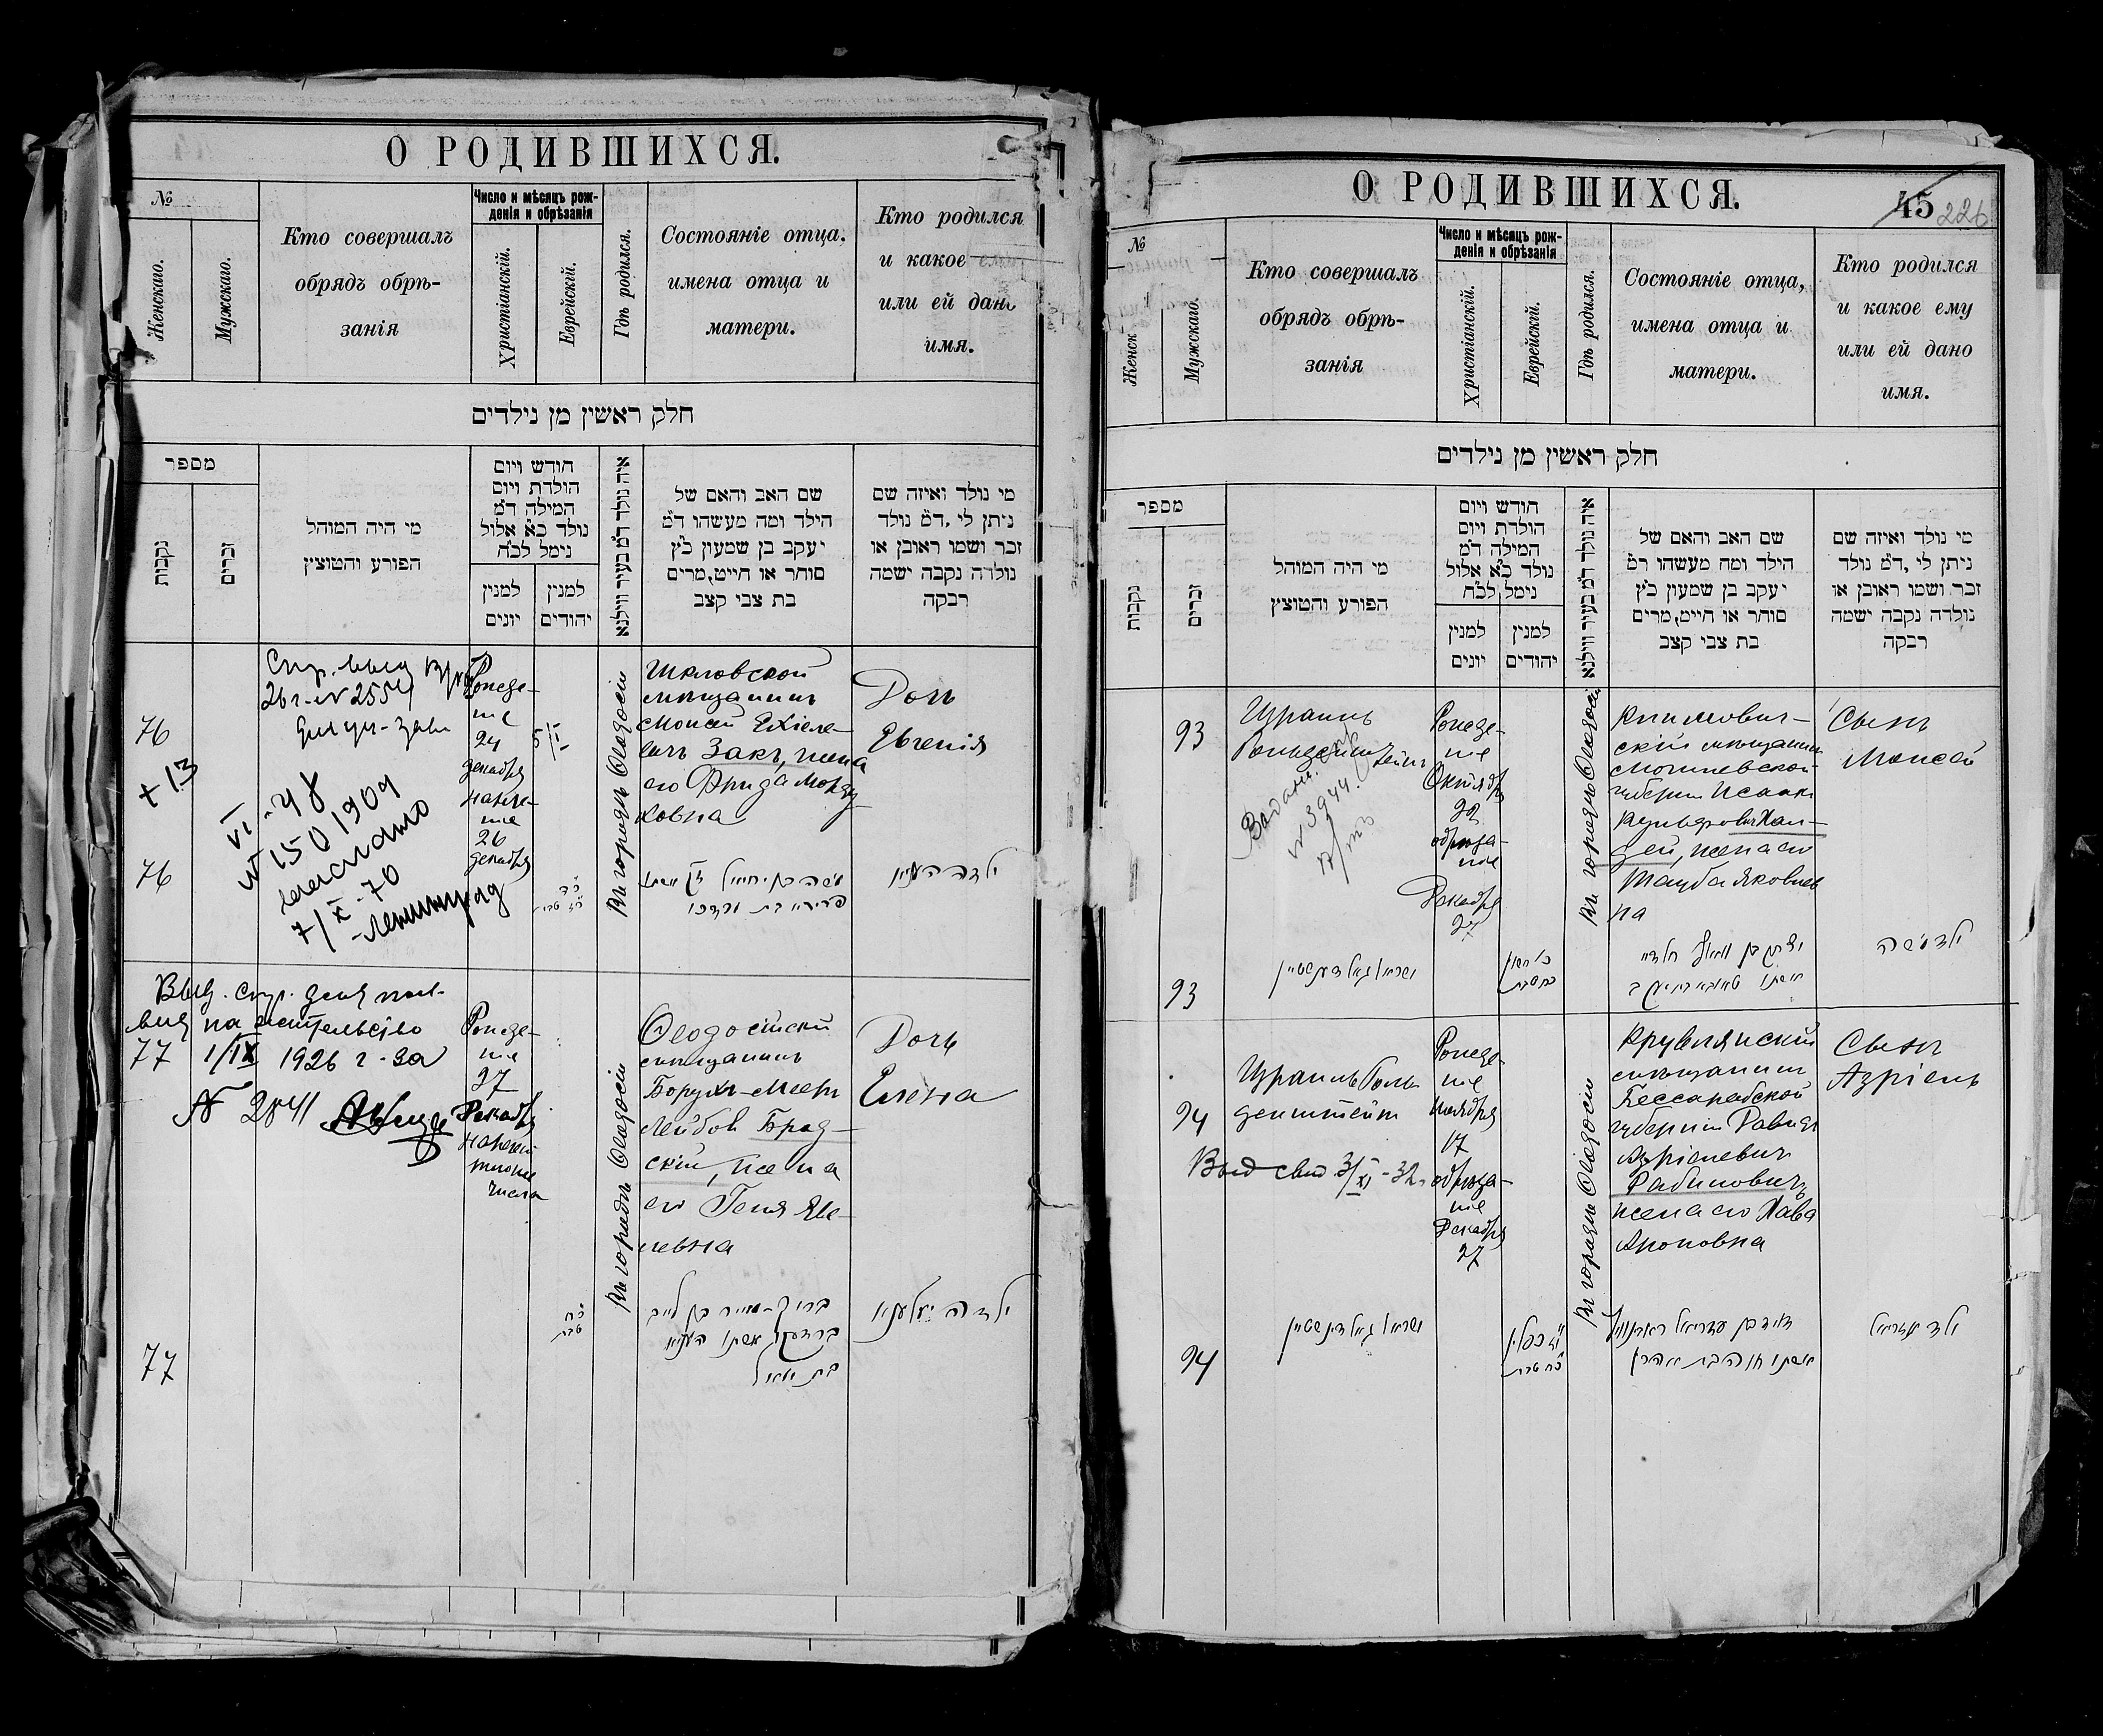 О РОДИВШИХСЯ.
№
Женскаго.
Мужскаго.
Кто совершалъ
обрядъ обрѣ-
занія
Число и мѣсяцъ рож-
денія и обрѣзанія
Христіанскій.
Еврейскій.
Гдѣ родился.
Состояніе отца,
имена отца и
матери.
Кто родился
и какое
или ей дано
имя.
חלק ראשין מן נילדים
מספר
נקבות
זכרים
מי היה המוהל
הפורע והמוצץ
חודש ויום
הולדת ויום
המילה ד״מ
נולד כ״א אלול
נימל לכ״ח
למנין
יונים
למנין
יהודים
איה נולד ד״מ בעיר ווילנא
שם האב והאם של
הילד ומה מעשהו ד״מ
יעקב בן שמעון כ״ץ
סוחר או חייט,מרים
בת צבי קצב
מי נולד ואיזה שם
ניתן לי ,ד״מ נולד
זכר ושמו ראובן או
נולדה נקבה ישמה
רבקה
76
+ 13
76
26 г. № 2554
VI - 48
№ 150 1909
7/X - 70
-Ленинград
Рожде-
ніе
24
декабря
нарече-
ніе
26
декабря
5/I
Въ городѣ Ѳеодосіи
Шкловской
мѣщанинъ
Моисей Ехіеле-
вичъ Закъ, жена
его Фрида Морду-
ховна
Дочь
Евгенія
Выд. спр. для
на жительство
77 1/IX 1926 г. за
№ 2841
77
Рожде-
ніе
27
Декабря
нарече
того же
числа
כ״ח
טבת
Въ городѣ Ѳеодосіи
Ѳеодосійскій
мѣщанинъ
Борухъ-Мееръ
Лейбов Брод-
скій, жена
его Геня Яве-
левна
ברוך-מאיר בן לייב
Дочь
Елена
О РОДИВШИХСЯ.
45 226
№
Женск
Мужскаго.
Кто совершалъ
обрядъ обрѣ-
занія
Число и мѣсяцъ рож-
денія и обрѣзанія
Христіанскій.
Еврейскій.
Гдѣ родился.
Состояніе отца,
имена отца и
матери.
Кто родился
и какое ему
или ей дано
имя.
חלק ראשין מן נילדים
מספר
נקבות
זכרים
מי היה המוהל
הפורע והמוצץ
חודש ויום
הולדת ויום
המילה ד״מ
נולד כ״א אלול
נימל לכ״ח
למנין
יונים
למנין
יהודים
איה נולד ד״מ בעיר ווילנא
שם האב והאם של
הילד ומה מעשהו ד״מ
יעקב בן שמעון כ״ץ
סוחר או חייט,מרים
בת צבי קצב
מי נולד ואיזה שם
ניתן לי ,ד״מ נולד
זכר ושמו ראובן או
נולדה נקבה ישמה
רבקה
93
93
Израиль
Гольденштейнъ
№ 3944
ישראל גאלדענשטיין
Рожде-
ніе
Октября
22
обрѣза-
ніе
Декабря
27
Въ городѣ Ѳеодосіи
Климович-
скій мѣщанинъ
Могилевской
губерніи Исаакъ
жена его
Тауба Яковлев
на
Сынъ
Моисей
ילד משה
94
94
Израиль Голь
денштейн
Выд свид 3/XI - 32.
ישראל גאלדינשטיין
Рожде-
ніе
Ноября
17
обрѣза-
ніе
Декабря
27
י״ד כסליו
כ״ח טבת
Въ городѣ Ѳеодосіи
мѣщанинъ
Бессарабской
губерніи Давидъ
Азріелевичъ
Рабиновичъ
жена его Хава
Ароновна
דוד בן עזריאל ראבינוויץ
אשתו חוה בת אהרן
Сынъ
Азріель
ילד עזריאל